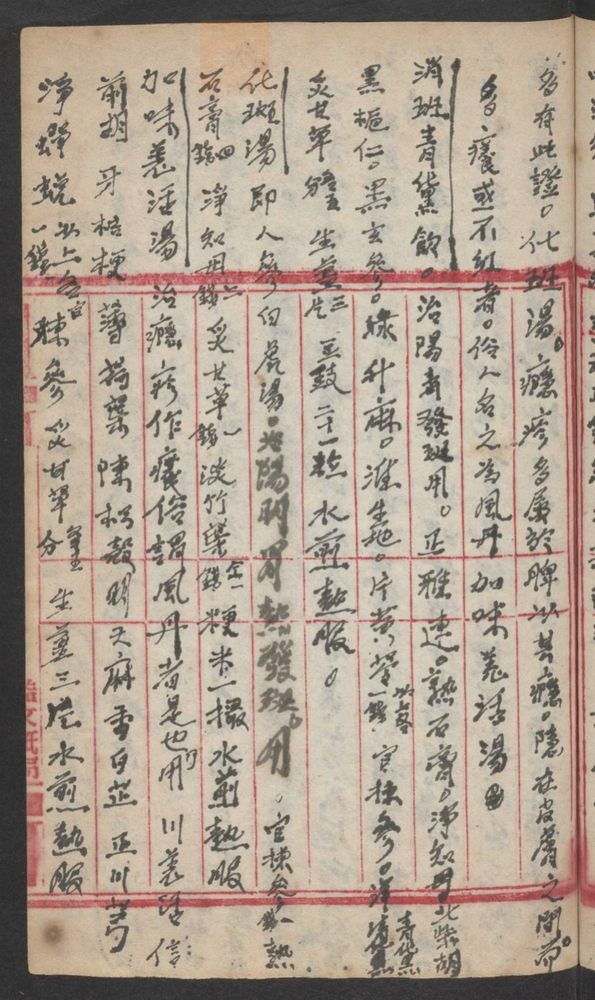 多有此證。化班湯。癮疹多屬於脾以其癮。隐在皮膚之間。而
多癢或不紅者。俗人名之為風丹加味羌活湯
消班青黛飲。治陽毒發班用。正雅連。熟石膏。淨知母北柴胡
黑梔仁。黑玄參。綠升麻。淮生地。片黃芩以上各一錢官揀參。洋青黛
炙甘草 生薑三片 豆鼓二十一粒 水煎熱服。
化斑湯 即人參白虎湯。治陽明胃熱發班。用。官揀參一錢熟
石膏四錢 淨知母二錢 炙甘草一錢 淡竹葉 粳米一撮水煎熱服
加味羌活湯 治癮疹作癢俗謂風丹者是也用 川羌活 信
前胡 牙桔梗 薄荷葉 陳枳殼 明天麻 香白芷 正川芎
淨蟬蛻以上各一錢 官揀參 炙甘草 生薑三片水煎熱服